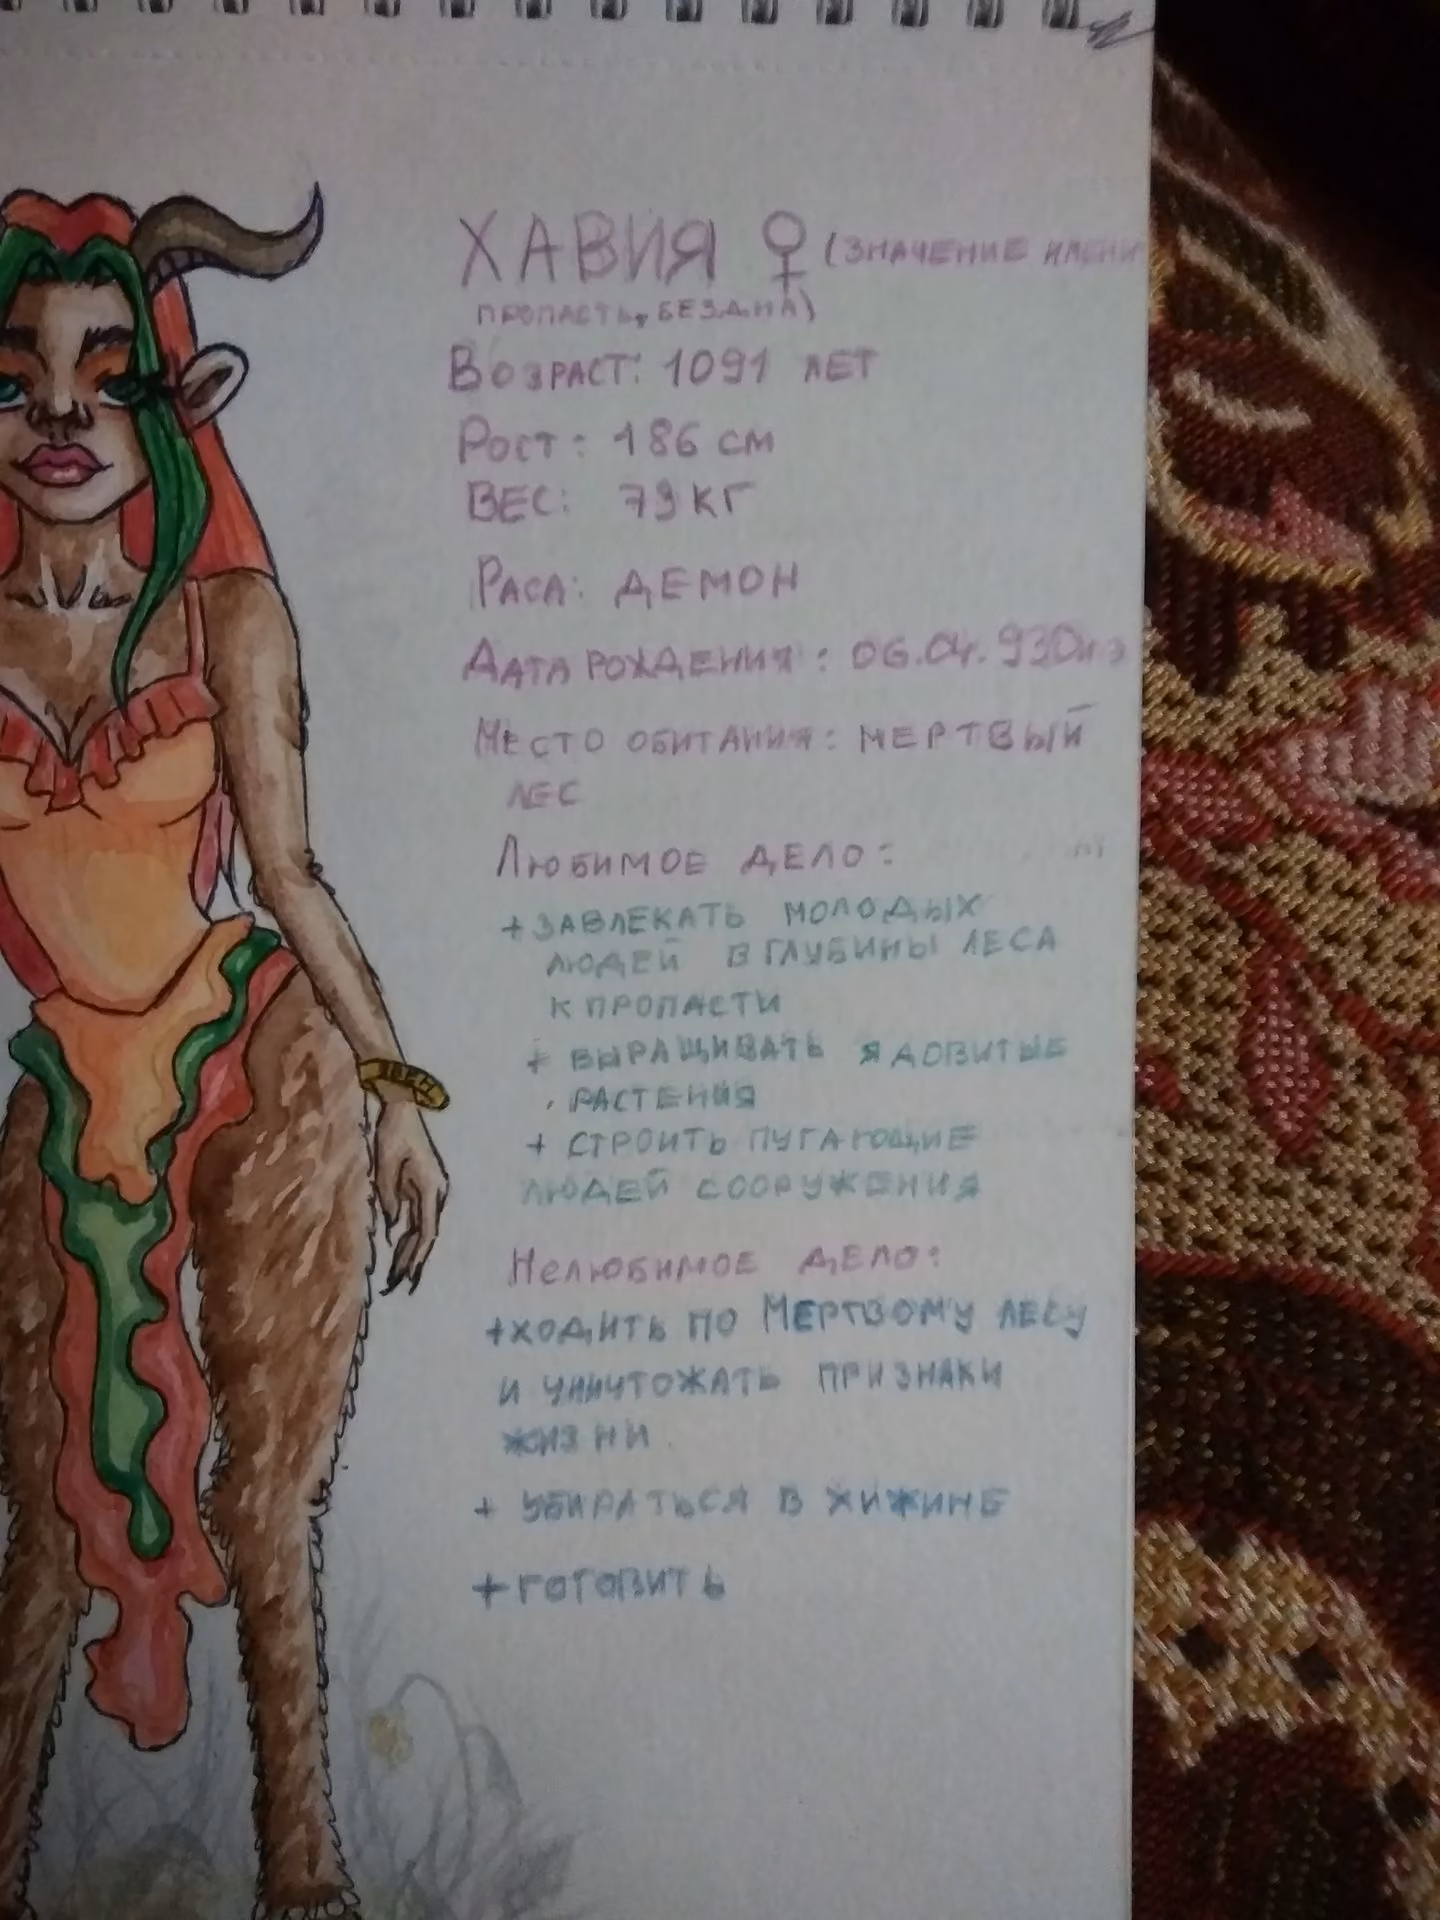 ХАВИЯ ♀ (ЗНАЧЕНИЕ ИМЕНИ
ПРОПАСТЬ, БЕЗДНА)
ВОЗРАСТ: 1091 ЛЕТ
РОСТ: 186 СМ
ВЕС: 79 КГ
РАСА: ДЕМОН
ДАТА РОЖДЕНИЯ: 06.04.930н э
МЕСТО ОБИТАНИЯ: МЕРТВЫЙ
ЛЕС
ЛЮБИМОЕ ДЕЛО:
+ЗАВЛЕКАТЬ МОЛОДЫХ
ЛЮДЕЙ В ГЛУБИНЫ ЛЕСА
К ПРОПАСТИ
+ ВЫРАЩИВАТЬ ЯДОВИТЫЕ
РАСТЕНИЯ
+ СТРОИТЬ ПУГАЮЩИЕ
ЛЮДЕЙ СООРУЖЕНИЯ
НЕЛЮБИМОЕ ДЕЛО:
+ХОДИТЬ ПО МЕРТВОМУ ЛЕСУ
И УНИЧТОЖАТЬ ПРИЗНАКИ
ЖИЗНИ
+ УБИРАТЬСЯ В ХИЖИНЕ
+ГОТОВИТЬ